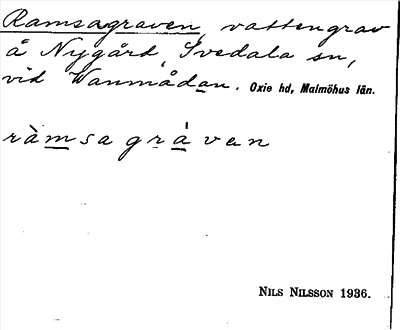 Ramsagraven, vattengrav
å Nygård, Svedala sn,
vid Vanmådan. Oxie hd, Malmöhus län.
ràmsagráven
NILS NILSSON 1936.